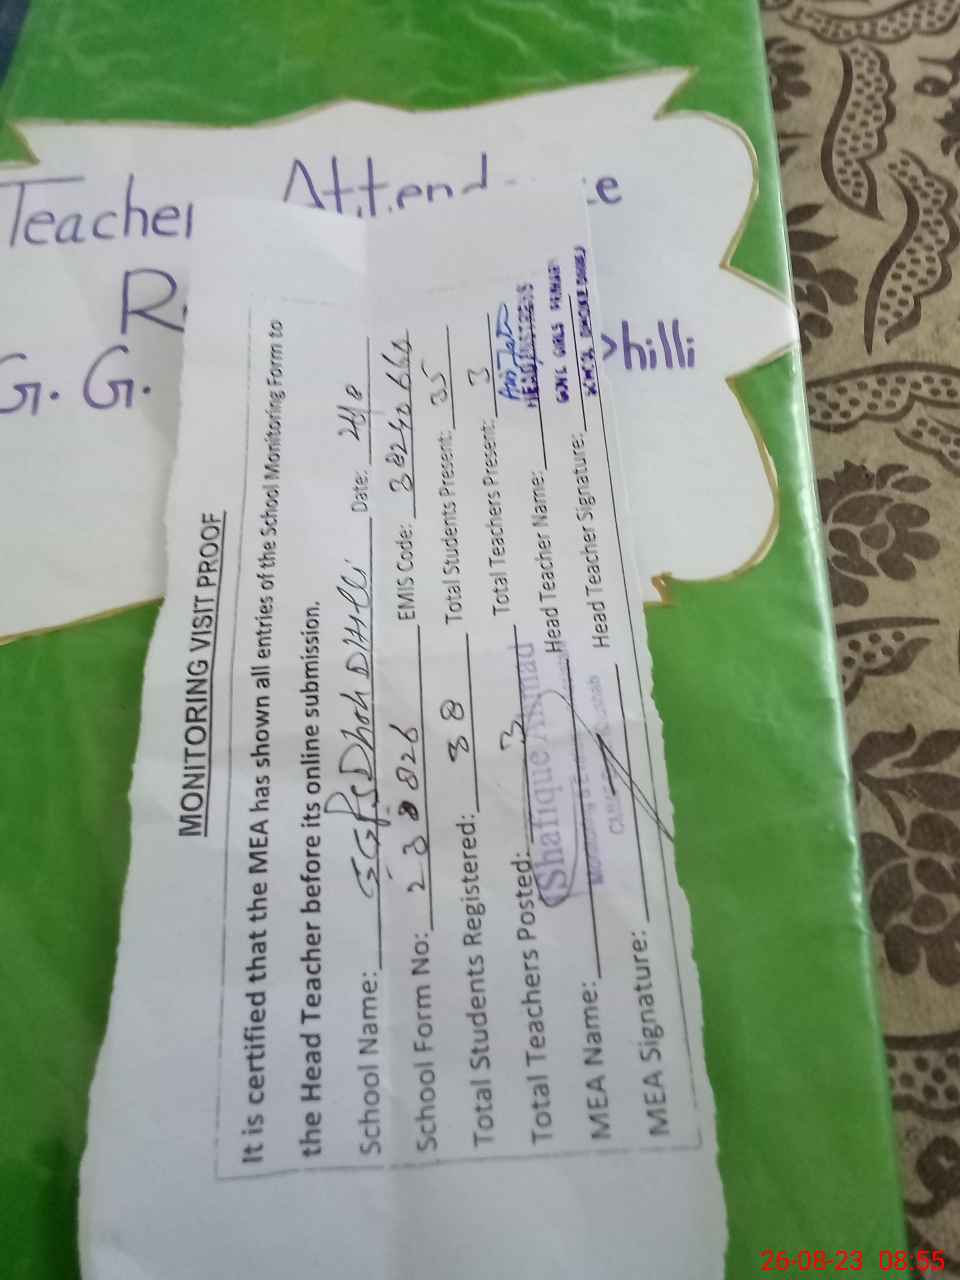 Teacher Attend
R
G. G. hilli
MONITORING VISIT PROOF
It is certified that the MEA has shown all entries of the School Monitoring Form to
the Head Teacher before its online submission.
School Name: GGPS Dhok Dhilli Date: 26/8
School Form No: EMIS Code: 38240660
Total Students Registered: 38 Total Students Present: 35
Total Teachers Posted: 3 Total Teachers Present: 3
MEA Name: Shafique Ahmad Head Teacher Name: HEADMISTRESS
MEA Signature: Head Teacher Signature:
GOVT. GIRLS PRIMARY
SCHOOL
26-08-23 08:55